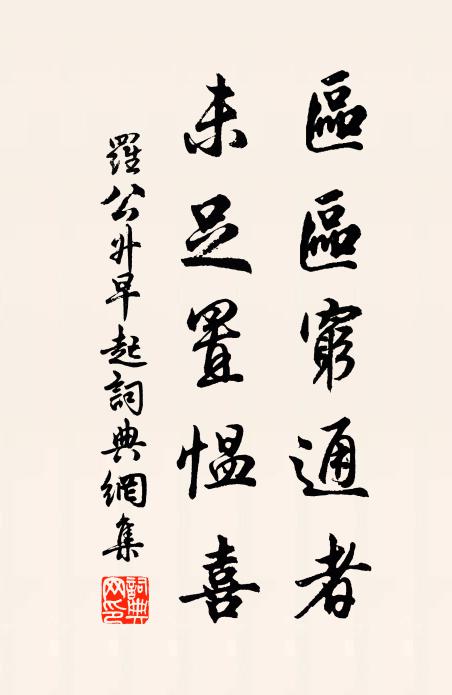 區區窮通者
未足置愠喜
羅公升早起詞典網集
詞典
网印